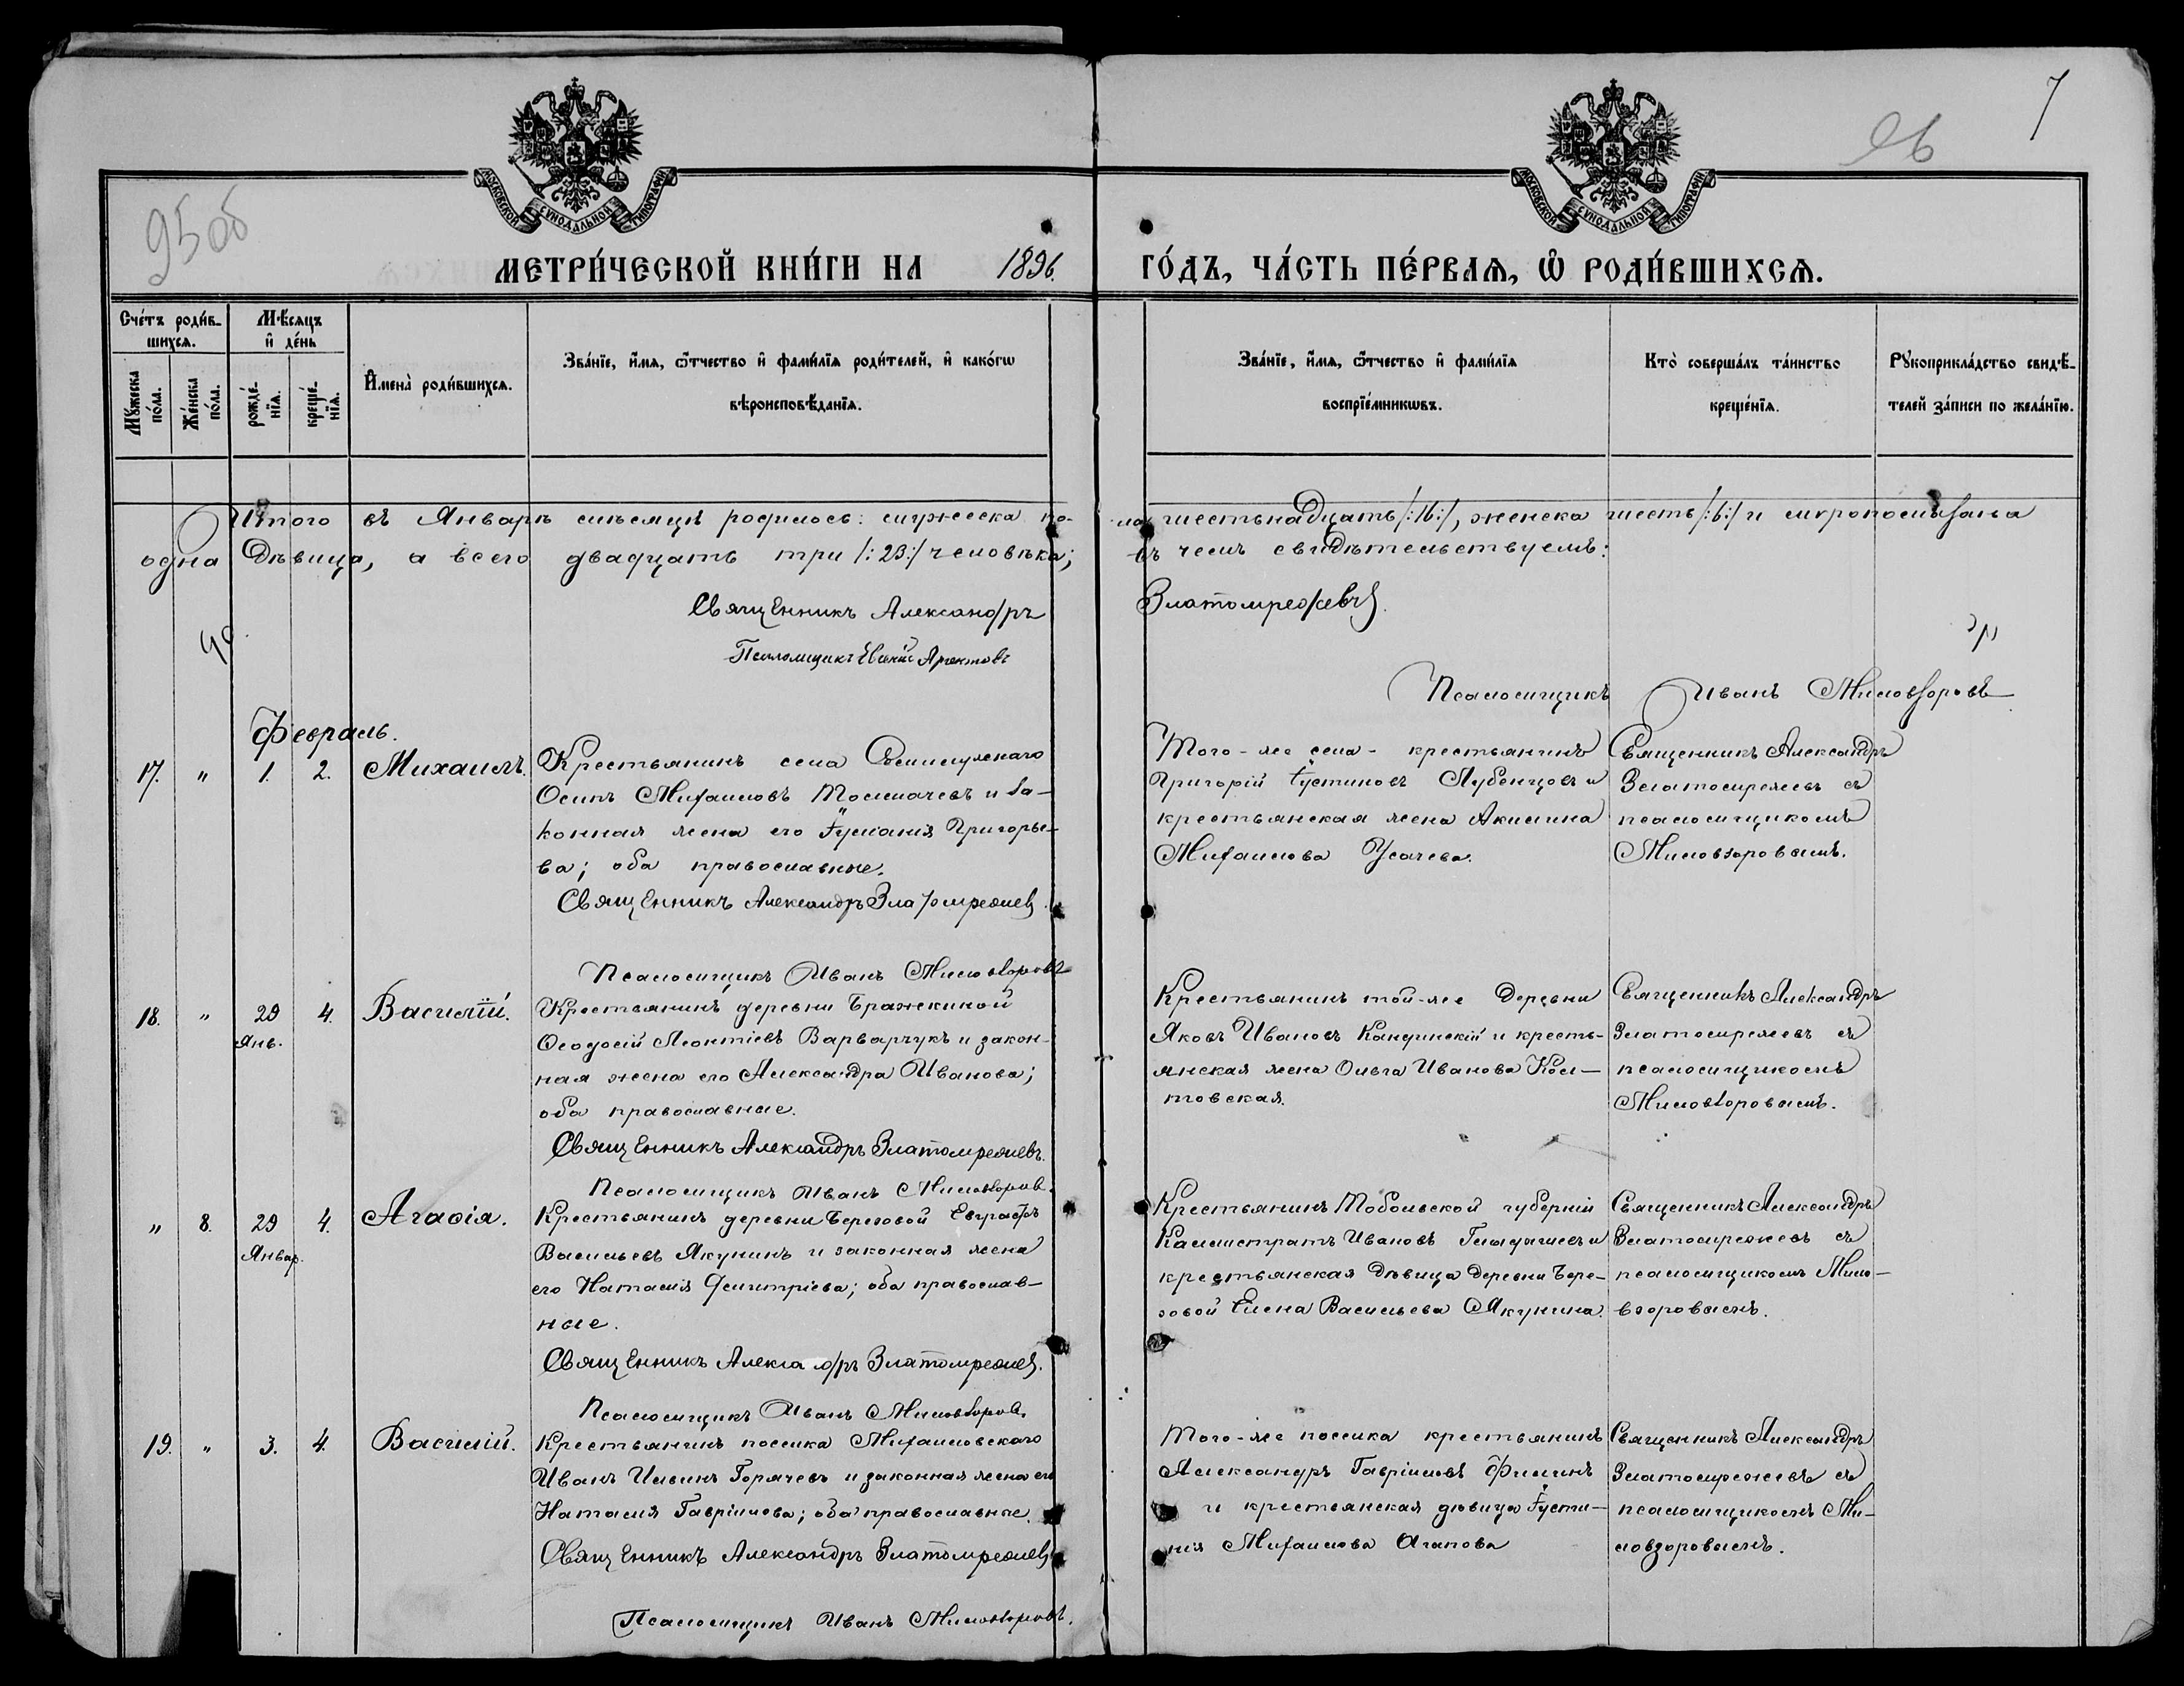 7
96
95 об
МОСКОВСКОЙ СѴНОДАЛЬНОЙ ТИПОГРАФІИ
МОСКОВСКОЙ СѴНОДАЛЬНОЙ ТИПОГРАФІИ
МЕТРИ́ЧЕСКОЙ КНИ́ГИ НА 1896. ГО́ДЪ, ЧА́СТЬ ПЕ́РВАЯ, Ѡ҆ РОДИ́ВШИХСЯ.
Сче́тъ роди́в-
шихся.
Мꙋ́жеска по́ла.
Же́нска по́ла.
Мѣ́сяцъ
и҆ де́нь
рожде́-нїя.
креще́-нїя.
И҆мена̀ роди́вшихся.
Зва́нїе, и҆́мя, ѻ҆́тчество и҆ фами́лїя роди́телей, и҆ како́гѡ
вѣроисповѣ́данїя.
Зва́нїе, и҆́мя, ѻ҆́тчество и҆ фами́лїя
воспрїе́мникѡвъ.
Кто̀ соверша́лъ та́инство
креще́нїя.
Рꙋкоприкла́дство свидѣ́-
телей за́писи по жела́нїю.
Итого въ Январѣ мѣсяцѣ родилось: мужеска по-ла шестьнадцать /:16:/, женска шесть /:6:/ и муропомазана
одна дѣвица, а всего двадцать три /:23:/ человѣка; въ чемъ свидѣтельствуемъ:
Священникъ Александръ Златомрежевъ.
Псаломщикъ
Псаломщикъ Иванъ Миловзоровъ
Февраль.
17. " 1. 2. Михаилъ.
Крестьянинъ села
Осипъ Михаиловъ Толмачевъ и за-
конная жена его Іуліанія Григорье-
ва; оба православные.
Священникъ Александръ Златомрежевъ.
Псаломщикъ Иванъ Миловзоровъ
Того-же села крестьянинъ
Григорій Іустиновъ Лубенцовъ и
крестьянская жена Акилина
Михаилова Усачева.
Священникъ Александръ
Златомрежевъ съ
псаломщикомъ
Миловзоровымъ.
18. " 29 Янв. 4. Василій.
Крестьянинъ деревни Бражскиной
Ѳеодосій Леонтіевъ Варварчукъ и закон-
ная жена его Александра Иванова;
оба православные.
Священникъ Александръ Златомрежевъ.
Псаломщикъ Иванъ Миловзоровъ.
Крестьянинъ той-же деревни
Яковъ Ивановъ Кандинскій и кресть-
янская жена Ольга Иванова Кол-
товская.
Священникъ Александръ
Златомрежевъ съ
псаломщикомъ
Миловзоровымъ.
" 8. 29 Январ. 4. Агафія.
Крестьянинъ деревни Березовой Евграфъ
Васильевъ Якунинъ и законная жена
его Наталія Димитріева; оба православ-
ные.
Священникъ Александръ Златомрежевъ.
Псаломщикъ Иванъ Миловзоровъ.
Крестьянинъ Тобольской губерніи
Каллистратъ Ивановъ и
крестьянская дѣвица деревни Бере-
зовой Елена Васильева Якунина.
Священникъ Александръ
Златомрежевъ съ
псаломщикомъ Мило-
взоровымъ.
19. " 3. 4. Василій.
Крестьянинъ поселка Михаиловскаго
Иванъ Ильинъ Горячевъ и законная жена его
Наталія Гавріилова; оба православные.
Священникъ Александръ Златомрежевъ
Псаломщикъ Иванъ Миловзоровъ.
Того-же поселка крестьянинъ
Александръ Гавріиловъ Филинъ
и крестьянская дѣвица Іусти-
нія Михаилова Агапова
Священникъ Александръ
Златомрежевъ съ
псаломщикомъ Ми-
ловзоровымъ.